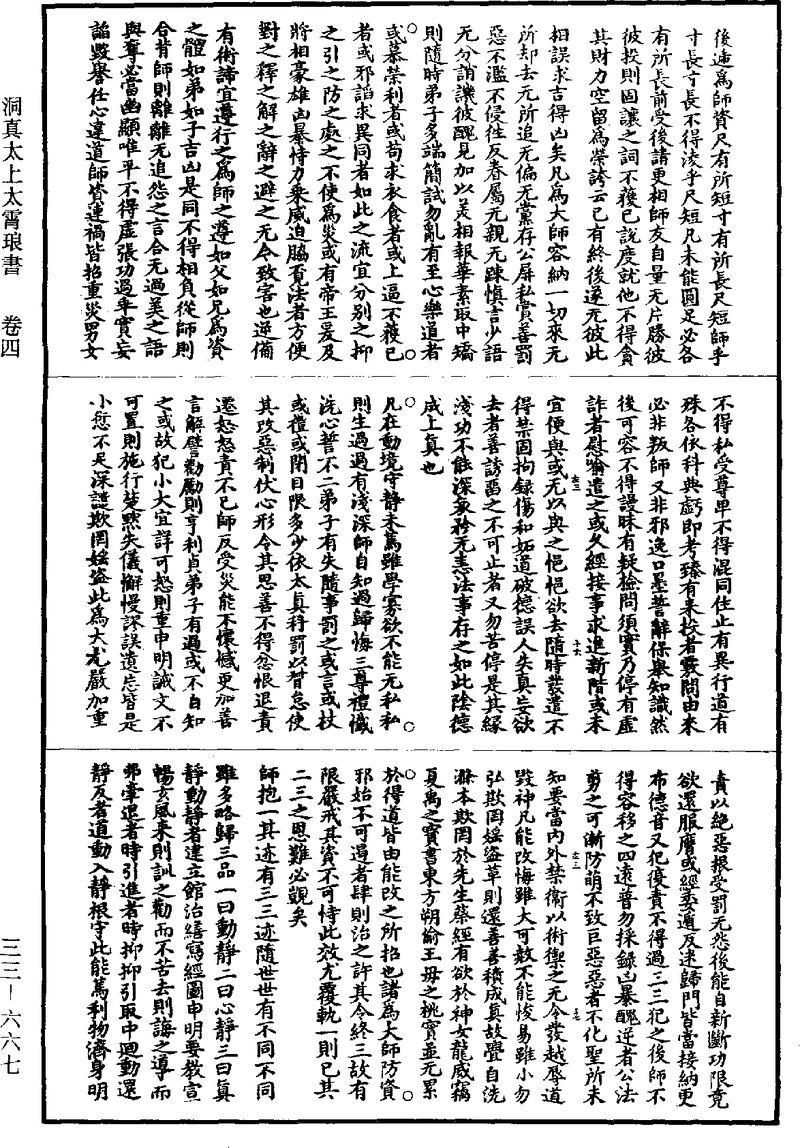 洞真太上太霄琅書　卷四
三三－六六七
後進為師資尺有所短寸有所長尺短師乎
寸長寸長不得淩乎尺短凡未能圓足必各
有所長前受後請更相師友自量无片勝彼
彼投則固讓之詞不獲已說度就他不得貪
其財力空留為榮誇云已有終後遂无彼此
相誤求吉得凶矣凡為大師容納一切來无
所却去无所追无偏无黨存公屏私賞善罰
惡不濫不侵往反眷屬无親无踈慎言少語
无分誚譏彼醜見加以美相報華素取中矯
則隨時弟子多端簡試勿亂有至心樂道者
或慕榮利者或苟求衣食者或上逼不獲已
者或邪諂求異同者如此之流宜分別之抑
之引之防之處之不使為災或有帝王爰及
將相豪雄凶暴恃力乘威迫脇看法者方便
對之釋之解之辭之避之无令致害也逆備
有術諦宜遵行之為師之尊如父如兄為資
之體如弟如子吉凶是同不得相負從師則
合背師則離離无追怨之言合无過美之語
與奪必當幽顯唯平不得虛張功過乖實妄
諂毀譽任心違道師資連禍皆招重災男女
不得私受尊卑不得混同住止有異行道有
殊各依科典虧即考臻有來投者覈問由來
必非叛師又非邪逸口墨誓辭保舉知識然
後可容不得謾昧有疑檢問須實乃停有虛
詐者慰喻遣之或久經接事求進新階或未
宜便與或无以與之悒悒欲去隨時發遣不
得禁固拘錄傷和妬道破德誤人失真妄欲
去者善誘留之不可止者又勿苦停是其緣
淺功不能深矣矜无恚法事存之如此陰德
成上真也
凡在動境守靜未篤雖學寡欲不能无私私
則生過過有淺深師自知過歸悔三尊禮懺
洗心誓不二弟子有失隨事罰之或言或杖
或禮或閉日限多少依太真科罰以督怠使
其改惡制伏心形令其思善不得忿恨退責
遷怒怒責不已師反受災能不懷憾更加善
言解譬勸勵則亨利貞弟子有過或不自知
之或故犯小大宜詳可恕則重申明誡文不
可置則施行楚默失儀懈慢謬誤遺忘皆是
小愆不足深譴欺罔婬盜此為大尤嚴加重
責以絕惡根受罰无怨後能自新斷功限竟
欲還服膺或經委遁反迷歸門皆當接納更
布德音又犯優責不得過二三犯之後師不
得容移之四遠普勿採錄凶暴醜逆者公法
剪之可漸防萌不致巨惡惡者不化聖所未
知要當內外禁衛以術禦之无令發越辱道
毀神凡能改悔雖大可教不能悛易雖小勿
弘欺罔婬盜革則還善善積成真故讋自洗
滌本欺罔於先生蔡經有欲於神女龍威竊
夏禹之寶書東方朔偷王母之桃實並无累
於得道皆由能改之所招也諸為大師防資
邪始不可過者肆則治之許其令終三故有
限嚴戒其資不可恃此效尤覆軌一則已其
二三之恩難必覬矣
師抱一其迹有三三迹隨世世有不同不同
雖多略歸三品一曰動靜二曰心靜三曰真
靜動靜者建立館治繕寫經圖申明要教宣
暢玄風來則訓之勸而不苦去則誨之導而
弗牽退者時引進者時抑抑引取中迴動還
靜反者道動入靜根守此能篤利物濟身明